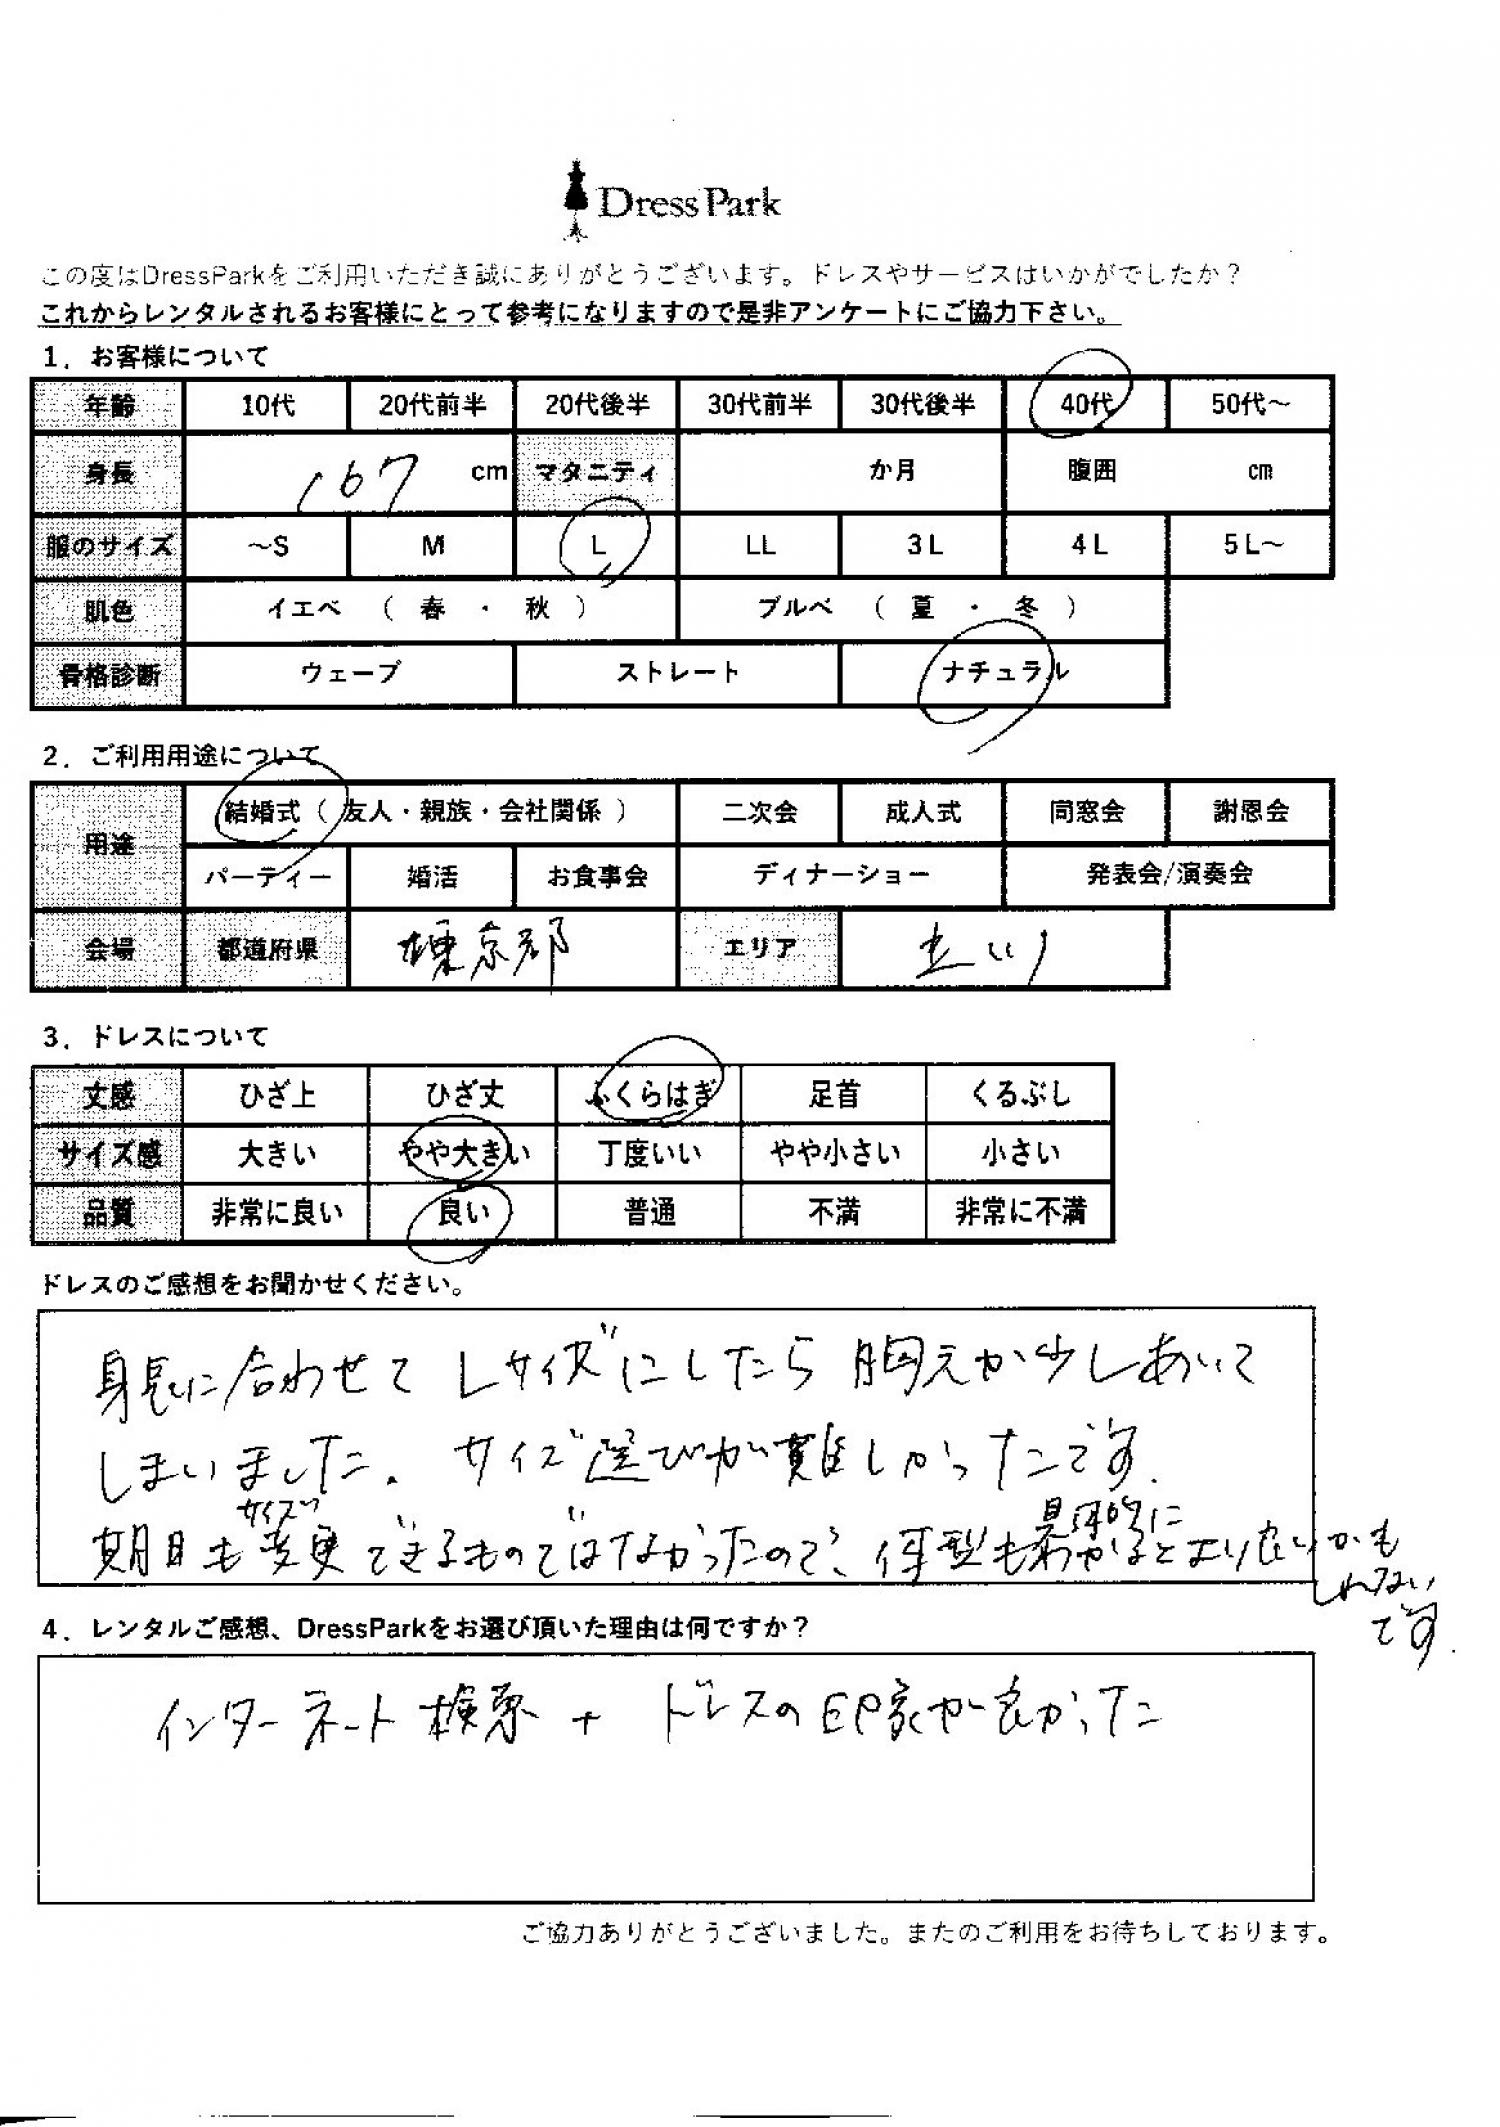 DressPark
この度はDressParkをご利用いただき誠にありがとうございます。ドレスやサービスはいかがでしたか？
これからレンタルされるお客様にとって参考になりますので是非アンケートにご協力下さい。
1．お客様について
年齢 10代 20代前半 20代後半 30代前半 30代後半 40代 50代～
身長 167 cm マタニティ か月 腹囲 cm
服のサイズ ～S M L LL 3L 4L 5L～
肌色 イエベ （ 春 ・ 秋 ） ブルベ （ 夏 ・ 冬 ）
骨格診断 ウェーブ ストレート ナチュラル
2．ご利用用途について
用途 結婚式（ 友人・親族・会社関係 ） 二次会 成人式 同窓会 謝恩会
パーティー 婚活 お食事会 ディナーショー 発表会/演奏会
会場 都道府県 東京都 エリア 立川
3．ドレスについて
丈感 ひざ上 ひざ丈 ふくらはぎ 足首 くるぶし
サイズ感 大きい やや大きい 丁度いい やや小さい 小さい
品質 非常に良い 良い 普通 不満 非常に不満
ドレスのご感想をお聞かせください。
身長に合わせてLサイズにしたら胸元が少しあいて
しまいました。サイズ選びが難しかったです。
期日もサイズ変更できるものではなかったので、体型も具体的にわかるとより良いかも
しれない
です。
4．レンタルご感想、DressParkをお選び頂いた理由は何ですか？
インターネット検索 + ドレスの印象が良かった
ご協力ありがとうございました。またのご利用をお待ちしております。